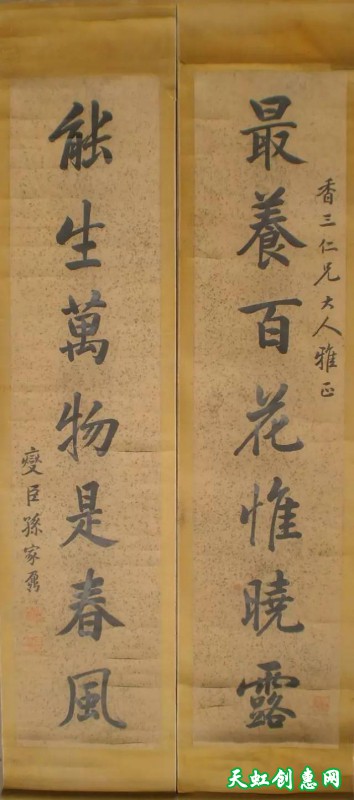 香三仁兄大人雅正
最養百花惟曉露
能生萬物是春風
燮臣孫家鼐
天虹创惠网